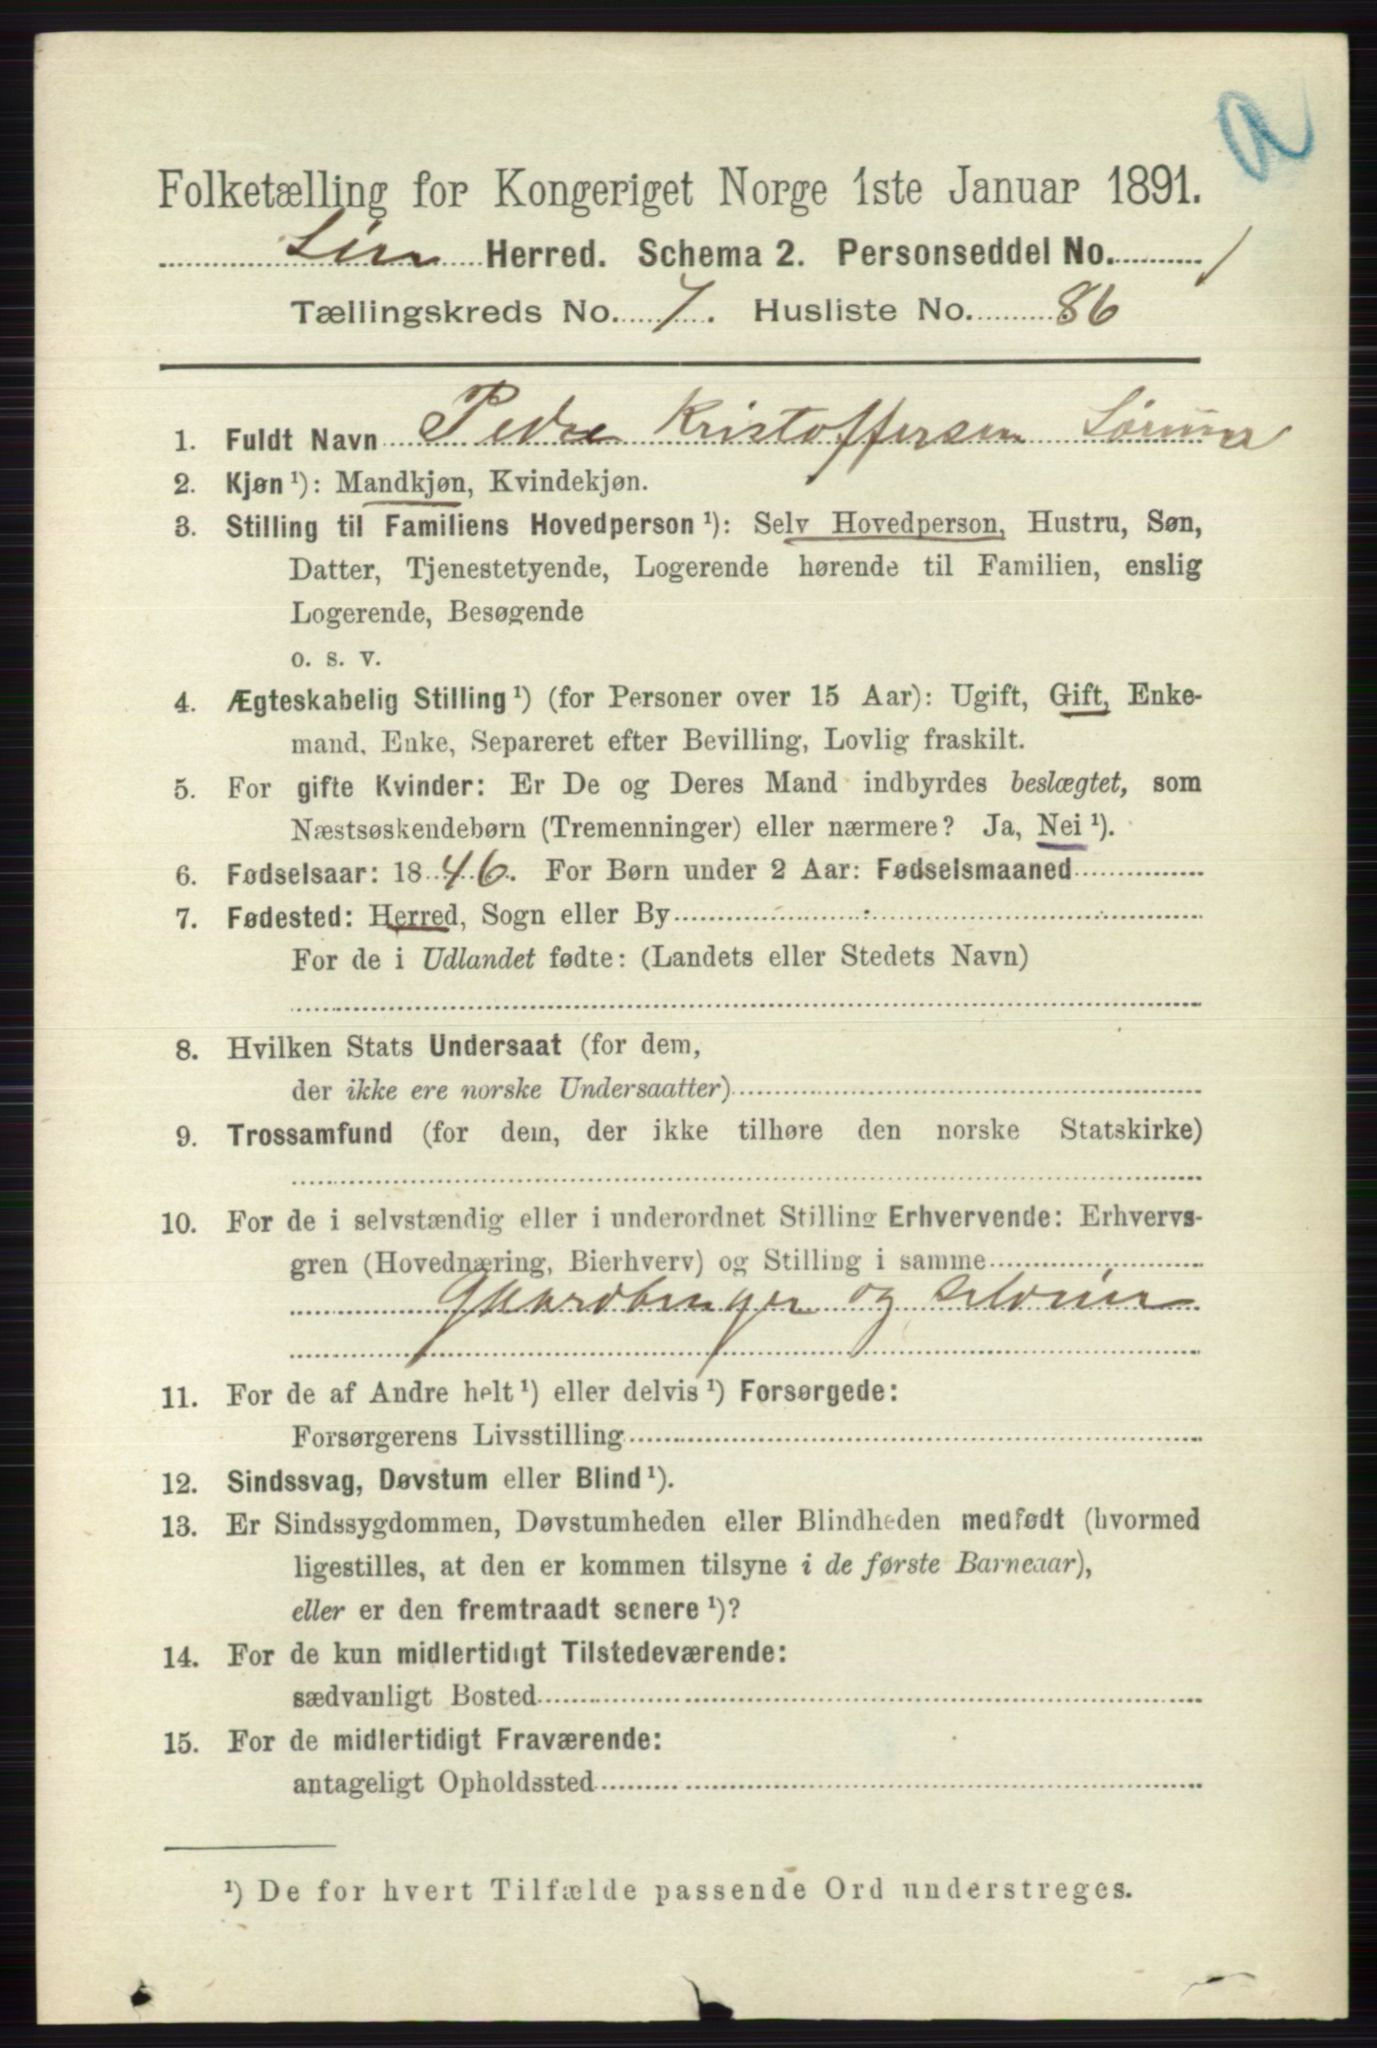 a
Folketælling for Kongeriget Norge 1ste Januar 1891.
Lier Herred. Schema 2. Personseddel No. 1
Tællingskreds No. 7. Husliste No. 86
1. Fuldt Navn Peder Kristoffersen
2. Kjøn ¹): Mandkjøn, Kvindekjøn.
3. Stilling til Familiens Hovedperson ¹): Selv Hovedperson, Hustru, Søn,
Datter, Tjenestetyende, Logerende hørende til Familien, enslig
Logerende, Besøgende
o. s. v.
4. Ægteskabelig Stilling ¹) (for Personer over 15 Aar): Ugift, Gift, Enke-
mand, Enke, Separeret efter Bevilling, Lovlig fraskilt.
5. For gifte Kvinder: Er De og Deres Mand indbyrdes beslægtet, som
Næstsøskendebørn (Tremenninger) eller nærmere? Ja, Nei ¹).
6. Fødselsaar: 1846. For Børn under 2 Aar: Fødselsmaaned
7. Fødested: Herred, Sogn eller By
For de i Udlandet fødte: (Landets eller Stedets Navn)
8. Hvilken Stats Undersaat (for dem,
der ikke ere norske Undersaatter)
9. Trossamfund (for dem, der ikke tilhøre den norske Statskirke)
10. For de i selvstændig eller i underordnet Stilling Erhvervende: Erhvervs-
gren (Hovednæring, Bierhverv) og Stilling i samme
Gaardbruger og Selveier
11. For de af Andre helt ¹) eller delvis ¹) Forsørgede:
Forsørgerens Livsstilling
12. Sindssvag, Døvstum eller Blind ¹).
13. Er Sindssygdommen, Døvstumheden eller Blindheden medfødt (hvormed
ligestilles, at den er kommen tilsyne i de første Barneaar),
eller er den fremtraadt senere ¹)?
14. For de kun midlertidigt Tilstedeværende:
sædvanligt Bosted
15. For de midlertidigt Fraværende:
antageligt Opholdssted
¹) De for hvert Tilfælde passende Ord understreges.